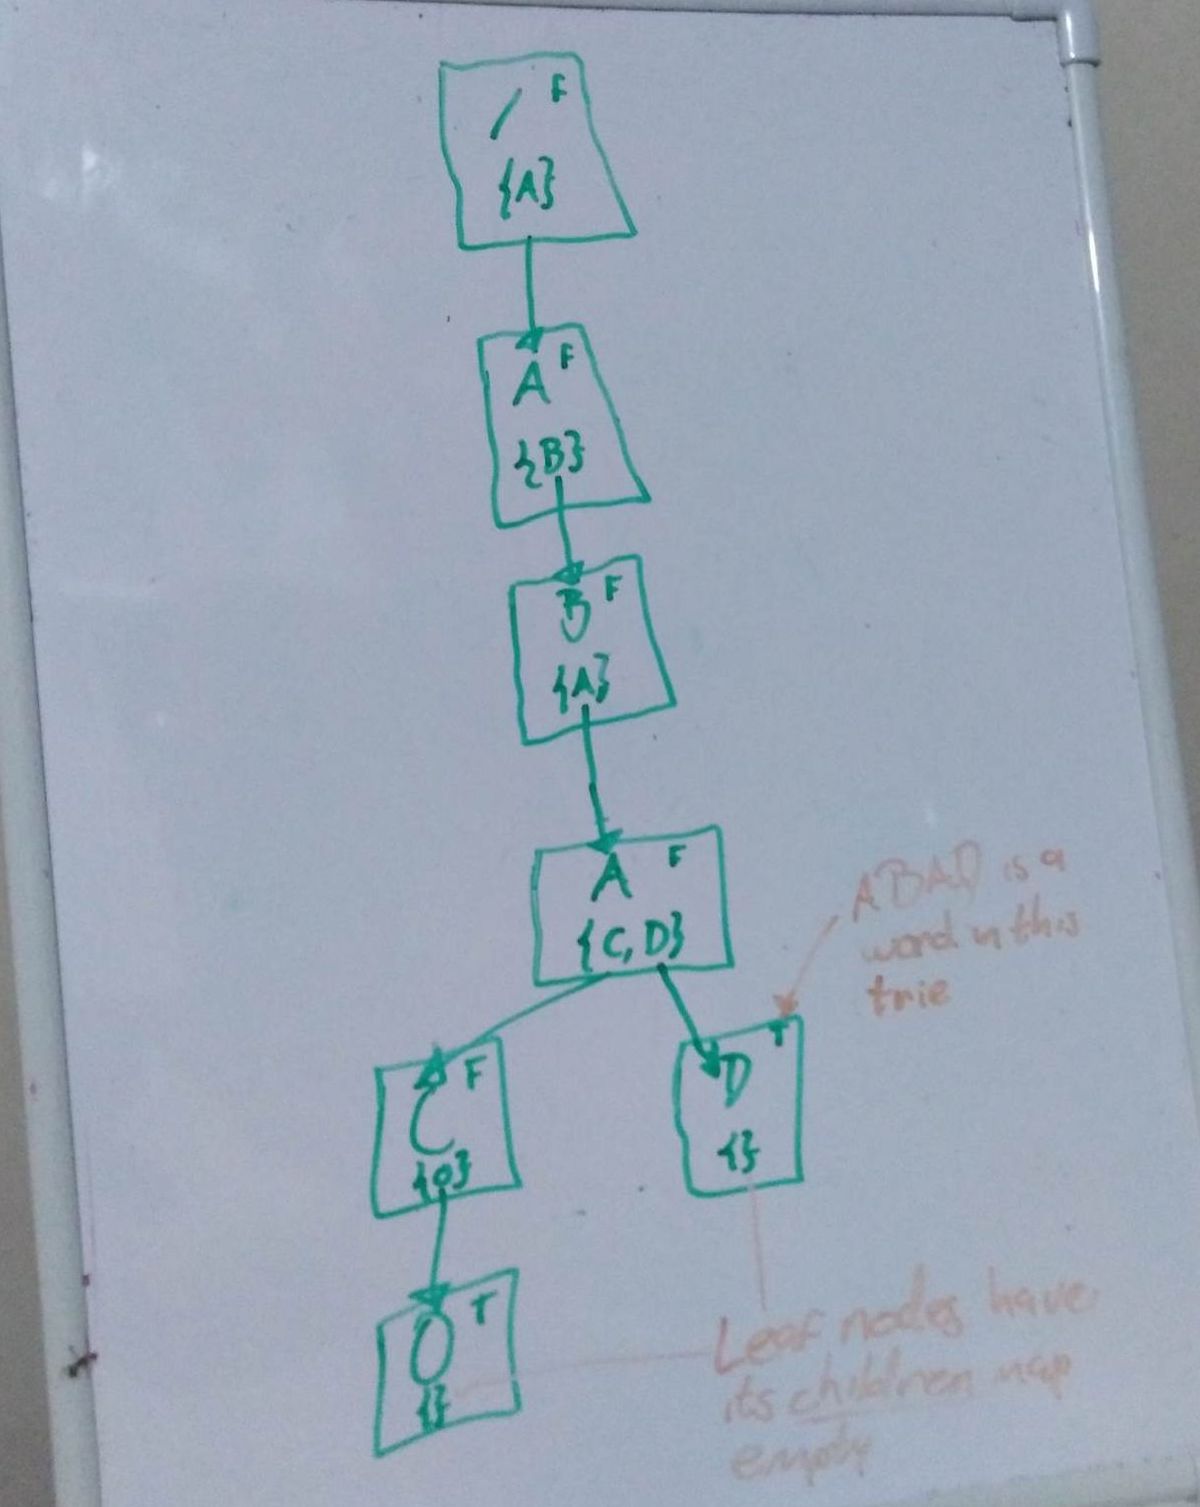 / F
{A}
A F
{B}
B F
{A}
A F
{C, D}
ABAD is a
word in this
trie
C F
{O}
D T
{}
O T
{}
Leaf nodes have
its children map
empty